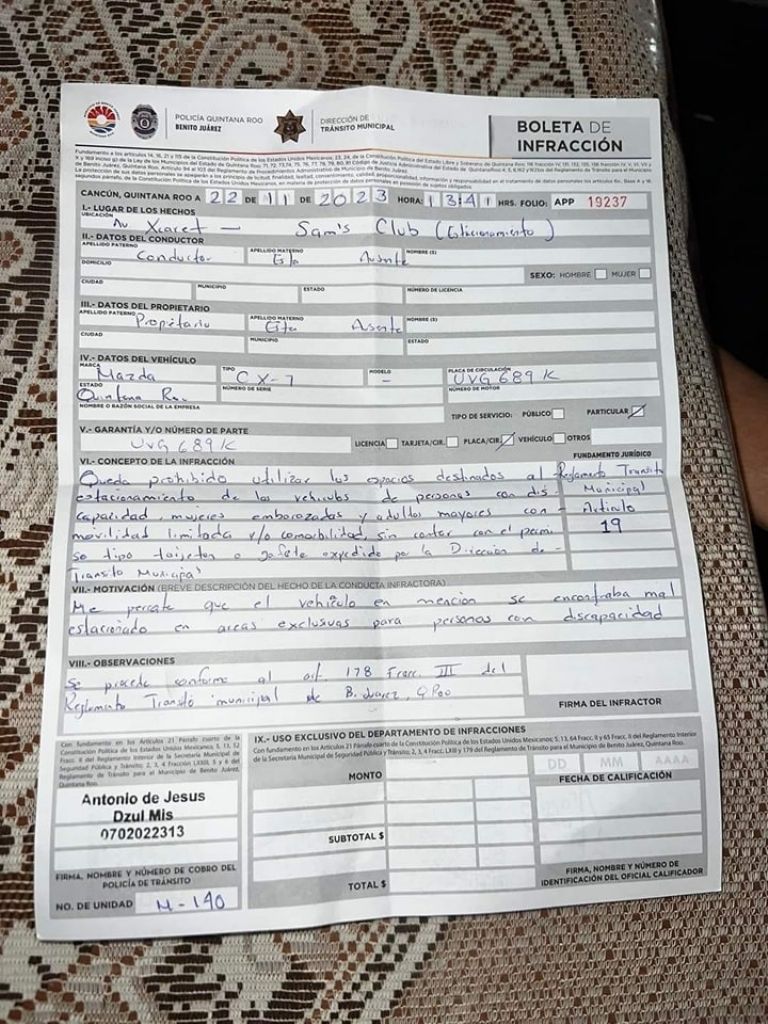 POLICÍA QUINTANA ROO
BENITO JUÁREZ
DIRECCIÓN DE
TRÁNSITO MUNICIPAL
BOLETA DE
INFRACCIÓN
CANCÚN, QUINTANA ROO A 22 DE 11 DE 2023 HORA: 13:41 HRS. FOLIO: APP 19237
I.- LUGAR DE LOS HECHOS
UBICACIÓN
Av Xcaret – Sam's Club (Estacionamiento)
II.- DATOS DEL CONDUCTOR
APELLIDO PATERNO APELLIDO MATERNO NOMBRE (S)
Conductor Esta Ausente
DOMICILIO SEXO: HOMBRE MUJER
CIUDAD MUNICIPIO ESTADO NÚMERO DE LICENCIA
III.- DATOS DEL PROPIETARIO
APELLIDO PATERNO APELLIDO MATERNO NOMBRE (S)
Propietario Esta Ausente
CIUDAD MUNICIPIO ESTADO
IV.- DATOS DEL VEHÍCULO
MARCA TIPO MODELO PLACA DE CIRCULACIÓN
Mazda CX-7 – UVG 689 K
ESTADO NÚMERO DE SERIE NÚMERO DE MOTOR
Quintana Roo
NOMBRE O RAZÓN SOCIAL DE LA EMPRESA
TIPO DE SERVICIO: PÚBLICO PARTICULAR
V.- GARANTÍA Y/O NÚMERO DE PARTE
UVG 689 K LICENCIA TARJETA/CIR. PLACA/CIR. VEHÍCULO OTROS
VI.- CONCEPTO DE LA INFRACCIÓN FUNDAMENTO JURÍDICO
Queda prohibido utilizar los espacios destinados al Reglamento Transito
estacionamiento de los vehiculos de personas con dis- Municipal
capacidad, mujeres embarazadas y adultos mayores con Articulo
movilidad limitada y/o comorbilidad, sin contar con el permi 19
so tipo tarjeton o gafete expedido por la Direccion de
Transito Municipal
VII.- MOTIVACIÓN (BREVE DESCRIPCIÓN DEL HECHO DE LA CONDUCTA INFRACTORA)
Me percate que el vehiculo en mencion se encontraba mal
estacionado en areas exclusivas para personas con discapacidad
VIII.- OBSERVACIONES
Se procede conforme al art. 178 Fracc. III del
Reglamento Transito municipal de B. Juarez, Q Roo
FIRMA DEL INFRACTOR
Con fundamento en los Artículos 21 Párrafo cuarto de la
Constitución Política de los Estados Unidos Mexicanos; 5, 13, 52
Fracc. II del Reglamento Interior de la Secretaría Municipal de
Seguridad Pública y Tránsito; 2, 3, 4 Fracción LXXIII, 5 y 6 del
Reglamento de Tránsito para el Municipio de Benito Juárez,
Quintana Roo.
Antonio de Jesus
Dzul Mis
0702022313
FIRMA, NOMBRE Y NÚMERO DE COBRO DEL
POLICÍA DE TRÁNSITO
NO. DE UNIDAD M-140
IX.- USO EXCLUSIVO DEL DEPARTAMENTO DE INFRACCIONES
Con fundamento en los Artículos 21 Párrafo cuarto de la Constitución Política de los Estados Unidos Mexicanos; 5, 13, 64 Fracc. II y 65 Fracc. II del Reglamento Interior
de la Secretaría Municipal de Seguridad Pública y Tránsito; 2, 3, 4 Fracc. LXIII y 179 del Reglamento de Tránsito para el Municipio de Benito Juárez, Quintana Roo.
MONTO
DD MM AAAA
FECHA DE CALIFICACIÓN
SUBTOTAL $
TOTAL $
FIRMA, NOMBRE Y NÚMERO DE
IDENTIFICACIÓN DEL OFICIAL CALIFICADOR